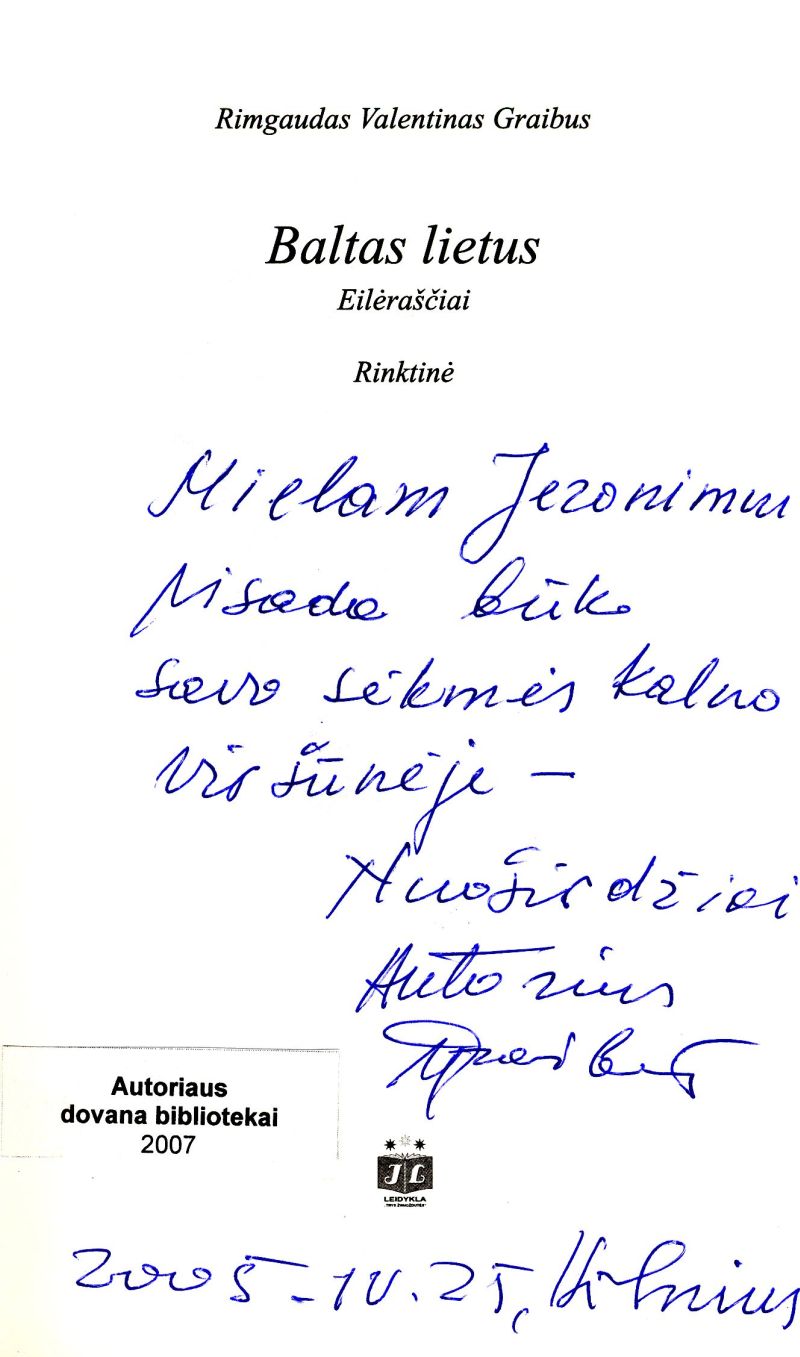 Rimgaudas Valentinas Graibus
Baltas lietus
Eilėraščiai
Rinktinė
Mielam Jeronimui
Visada būk
savo sėkmės kalno
viršūnėje –
Nuoširdžiai
Autorius
Graibus
Autoriaus
dovana bibliotekai
2007
JL
LEIDYKLA
"TRYS ŽVAIGŽDUTĖS"
2005-IV.25, Vilnius